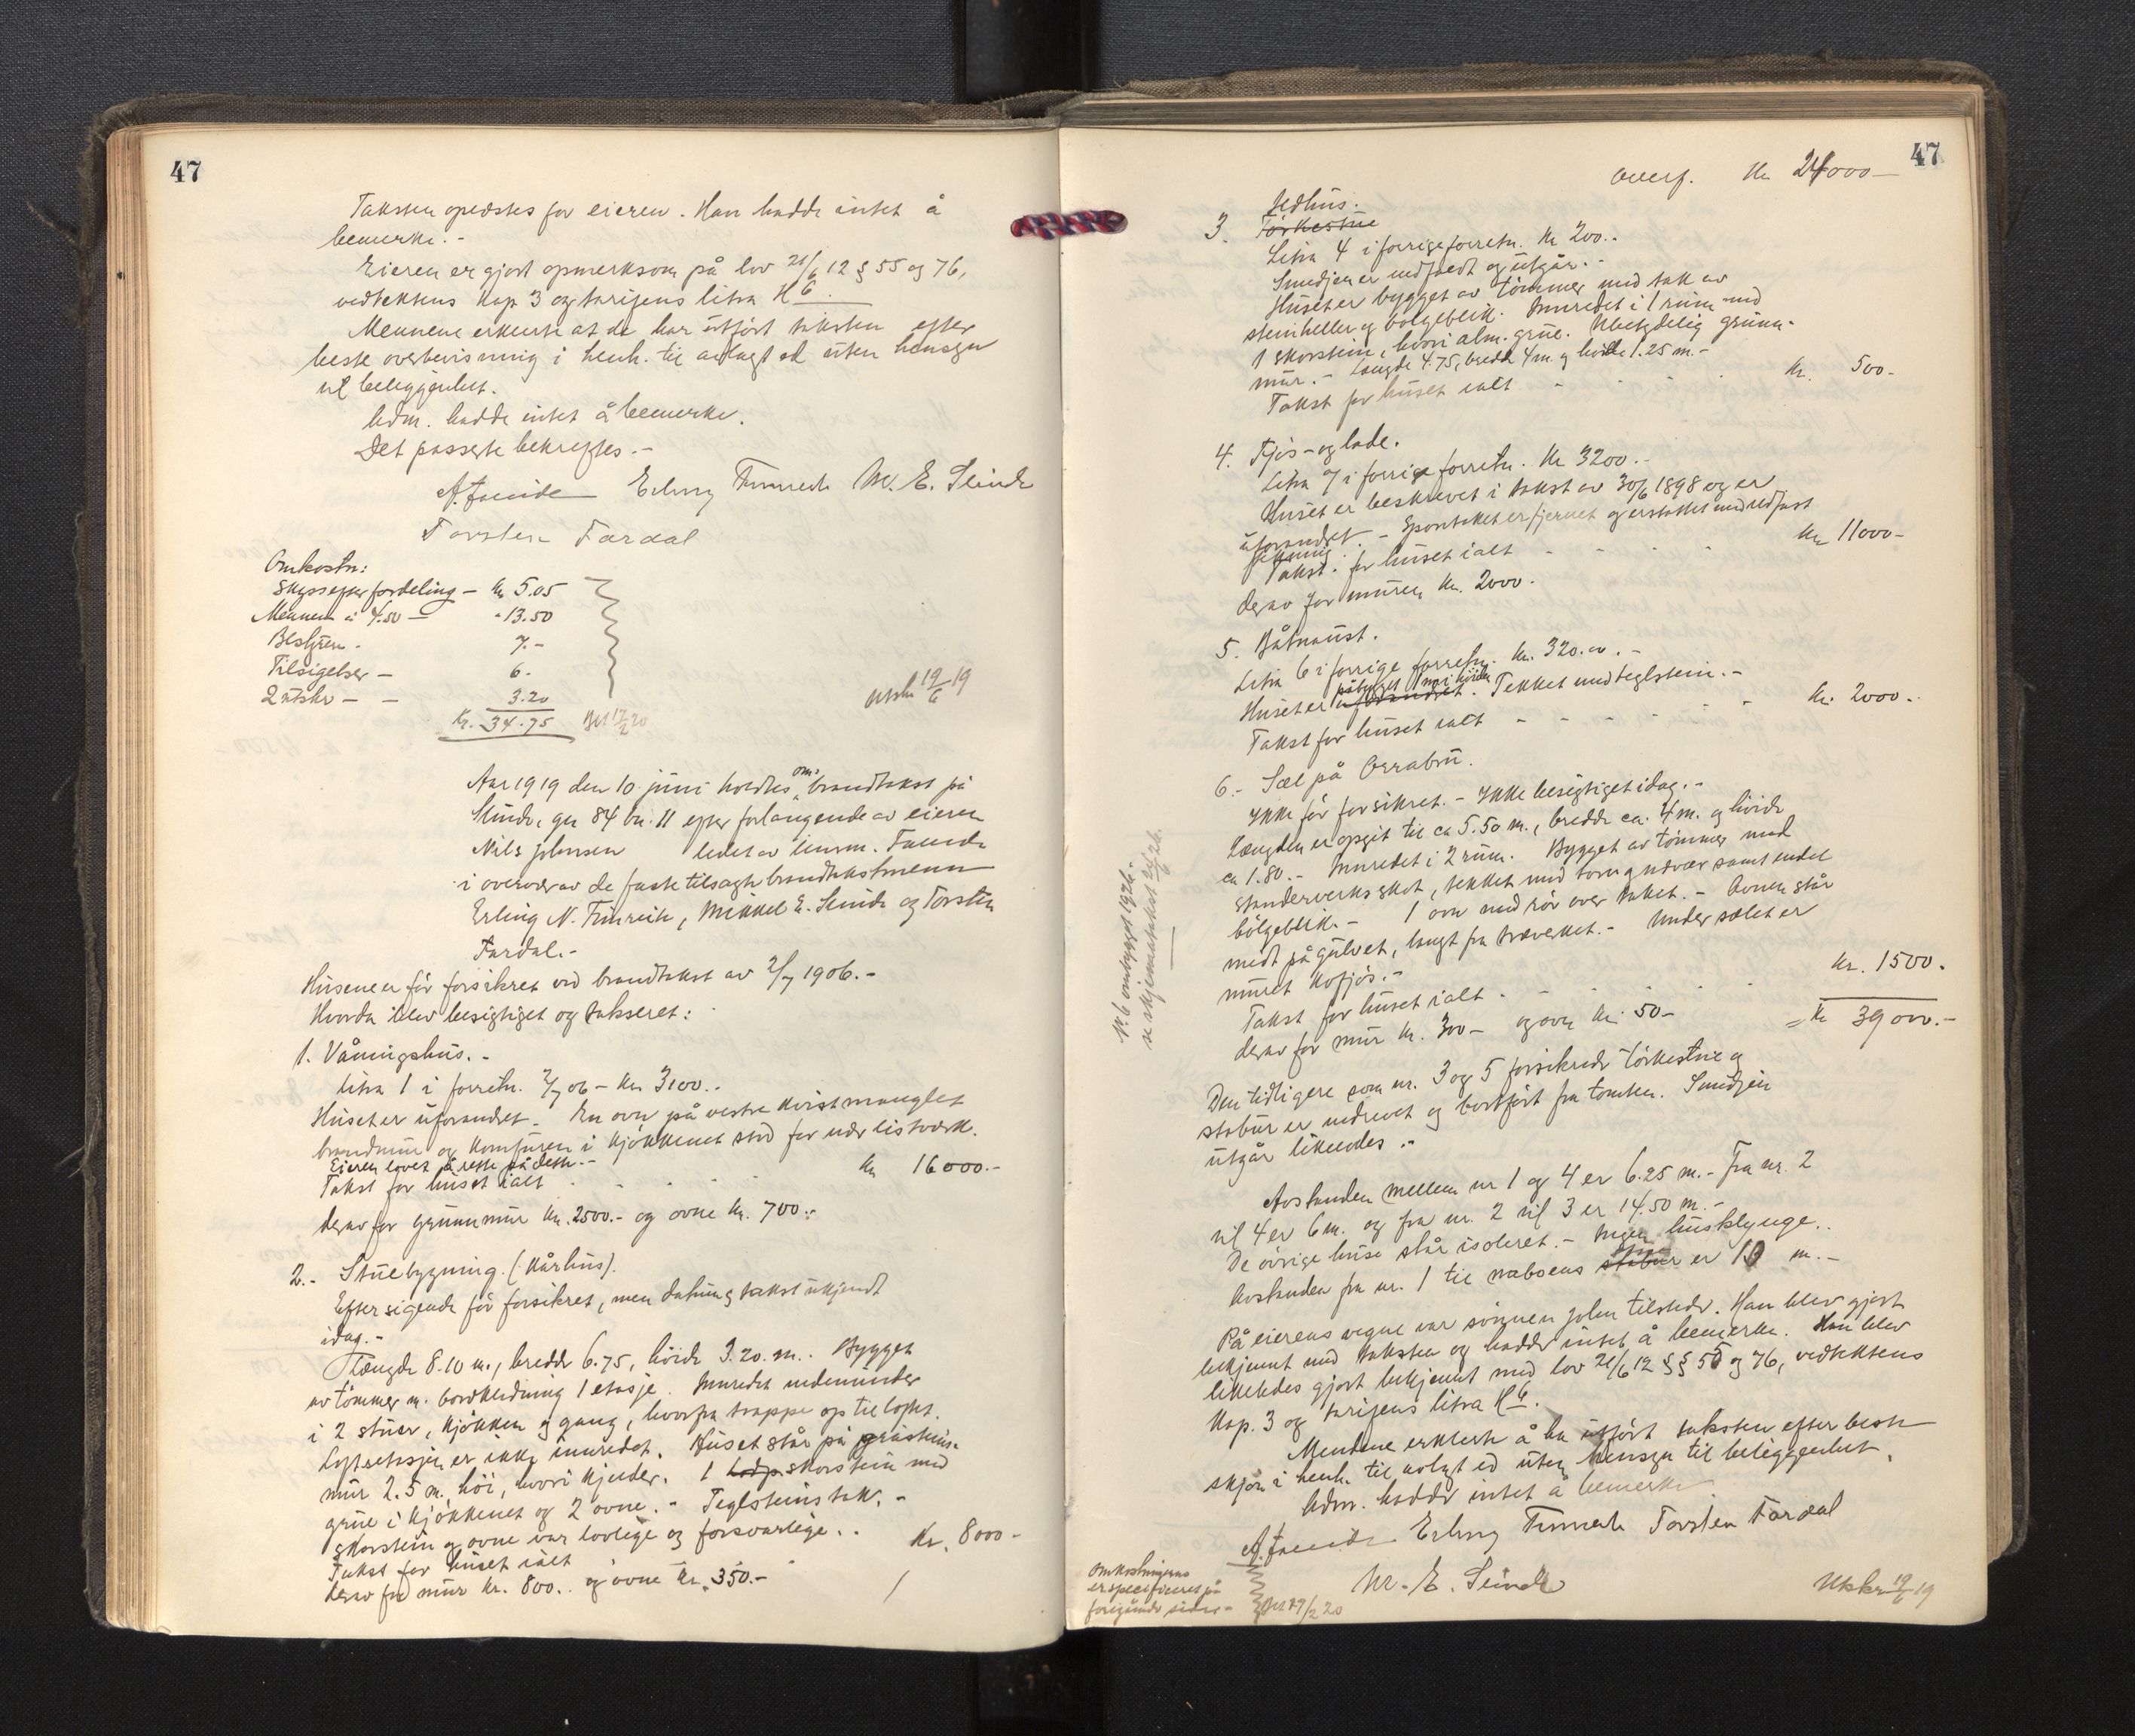 47
Taksten oplæstes for eieren. Han hadde intet å
bemerke.-
Eieren er gjort opmerksom på lov 21/6 12 § 55 og 76,
vedtektens kap 3 og tarifens litra H 6.
Mennene erklærte at de har utført taksten efter
beste overbevisning i henh. til avlagt ed uten hensyn
til beliggenhet.
Adm. hadde intet å bemerke.
Det passerte bekreftes.-
Erling Fimreite M. E. Slinde
Torsten Fardal
Omkostn:
Skyss efter fordeling - kr 5.05
Mennene à 4.50 - - 13.50
Bestyren - 7.-
Tilsigelser - 6.
2 utskr - - 3.20
Kr. 34.75 Bet 17/2 20
Utskr 19/6 19
Aar 1919 den 10 juni holdtes om-brandtakst på
Slinde, gn 84 bn. 11 efter forlangende av eieren
Nils Johnsen ledet av lensm.
i overvær av de faste tilsagte brandtakstmenn
Erling N. Fimreite, Mikkel E. Slinde og Torsten
Fardal.-
Husene er før forsikret ved brandtakst av 2/7 1906.-
Hvorda blev besigtiget og takseret:
1. Våningshus.-
Litra 1 i forretn. 2/7 06 - kr. 3100..
Huset er uforandret. En ovn på vestre kvist manglet
brandmur og komfuren i kjøkkenet stod for nær listverk.
Eieren lovet å rette på dette.-
Takst for huset ialt - - - kr 16000.-
derav for grunnmur kr. 2500.- og ovne kr. 700.-
2.- Stuebygning (Kårhus).
Efter sigende før forsikret, men datum og takst ukjendt
idag.-
Længde 8.10 m., bredde 6.75, høide 3.20 m.. Bygget
av tømmer m. bordklædning 1 etasje. Innredet nedenunder
i 2 stuer, kjøkken og gang, hvorfra trappe op til loftet.
Loftsetasjen er ikke innredet. Huset står på gråsteins-
mur 2.5 m. høi, hvori kjelder. 1 skorstein med
grue i kjøkkenet og 2 ovne.- Teglsteinstak.-
Skorstein og ovne var lovlige og forsvarlige..
Takst for huset ialt Kr. 8000-
derav for mur kr. 800.. og ovne kr. 350.-
47
Overf. Kr 24000-
Vedhus.
3. Tørkestue
Litra 4 i forrige forretn. Kr 200.-
Smedjen er nedfaldt og utgår.-
Huset er bygget av tømmer med tak av
steinheller og bølgeblik. Innredet i 1 rum med
1 skorstein, hvori alm. grue. Ubetydelig grunn-
mur.- Længde 4.75, bredde 4 m. og høide 1.25 m.-
Takst for huset ialt - - - kr. 500-
4. Fjøs- og lade.
Litra 7 i forrige forretn. Kr 3200.-
Huset er beskrevet i takst av 30/6 1898 og er
uforandret.- Spontaket er fjernet og erstattet med
tekning.
Takst for huset ialt - - - kr 11000-
derav for muren kr. 2000.
5. Båtnaust.
Litra 6 i forrige forretn. kr. 320.00.-
Huset er påbygget i høiden uforandret. Tekket med teglstein.-
Takst for huset ialt - - - - - kr. 2000.-
6.- Sæl på Orrabu.
Ikke før forsikret.- Ikke besigtiget idag.-
Længden er opgit til ca 5.50 m., bredde ca. 4 m. og høide
ca 1.80.- Innredet i 2 rum. Bygget av tømmer med
standerverks skot, tekket med torv og næver samt endel
bølgeblik.- 1 ovn med rør over taket.- Ovnen står
midt på gulvet, langt fra træverket.- Under sælet er
muret kofjøs.-
Takst for huset ialt - - - - kr. 1500.
derav for mur kr. 300- og ovn kr. 50-
= Kr 39000.-
No. 6 ombygget 1926.
se skjematakst 26.
Den tidligere som nr. 3 og 5 forsikrede tørkestue og
stabur er nedrevet og bortført fra tomten. Smedjen
utgår likeledes.-
Avstanden mellem nr 1 og 4 er 6.25 m.- Fra nr. 2
til 4 er 6 m. og fra nr. 2 til 3 er 14.50 m.-
De øvrige huse står isoleret.- Ingen husklynge..
Avstanden fra nr. 1 til naboens stabur er 10 m.-
På eierens vegne var sønnen John tilstede. Han blev gjort
bekjennt med taksten og hadde intet å bemerke. Han blev
likeledes gjort bekjennt med lov 21/6 12 §§ 55 og 76, vedtektens
Kap. 3 og tarifens litra H 6.
Mendene erklærte å ha utført taksten efter beste
skjøn i henh. til avlagt ed uten hensyn til beliggenhet.
Adm. hadde intet å bemerke
Erling Fimreite Torsten Fardal
M. E. Slinde
Omkostningerne
er specificeret på
foregående side.-
Bet 17/2 20
Utskr 19/6 19